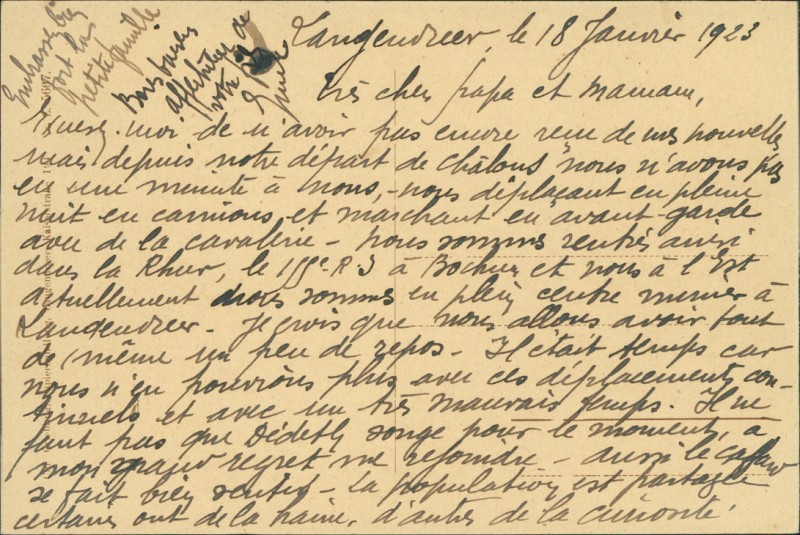 Langendreer, le 18 Janvier 1923
Très chers papa et Maman,
Excusez-moi de n'avoir pas encore reçu de mes nouvelles
mais depuis notre départ de Châlons nous n'avons pas
eu une minute à nous, - nous déplaçant en pleine
nuit en camions, et marchant en avant-garde
avec de la cavalerie - Nous sommes rentrés ainsi
dans la Rhur, le 155e R.I à Bochum et nous à l'Est
Actuellement nous sommes en plein centre minier à
Langendreer - Je crois que nous allons avoir tout
de même un peu de repos - Il était temps car
nous n'en pouvions plus avec ces déplacements con-
tinuels et avec un très mauvais temps. Il ne
faut pas que Dédeth songe pour le moment, à
mon grand regret me rejoindre - aussi le cafard
se fait bien sentir - La population est partagée
certains ont de la haine, d'autres de la curiosité.
Embrassez bien
fort la
petite famille
Bons baisers
affectueux de
votre